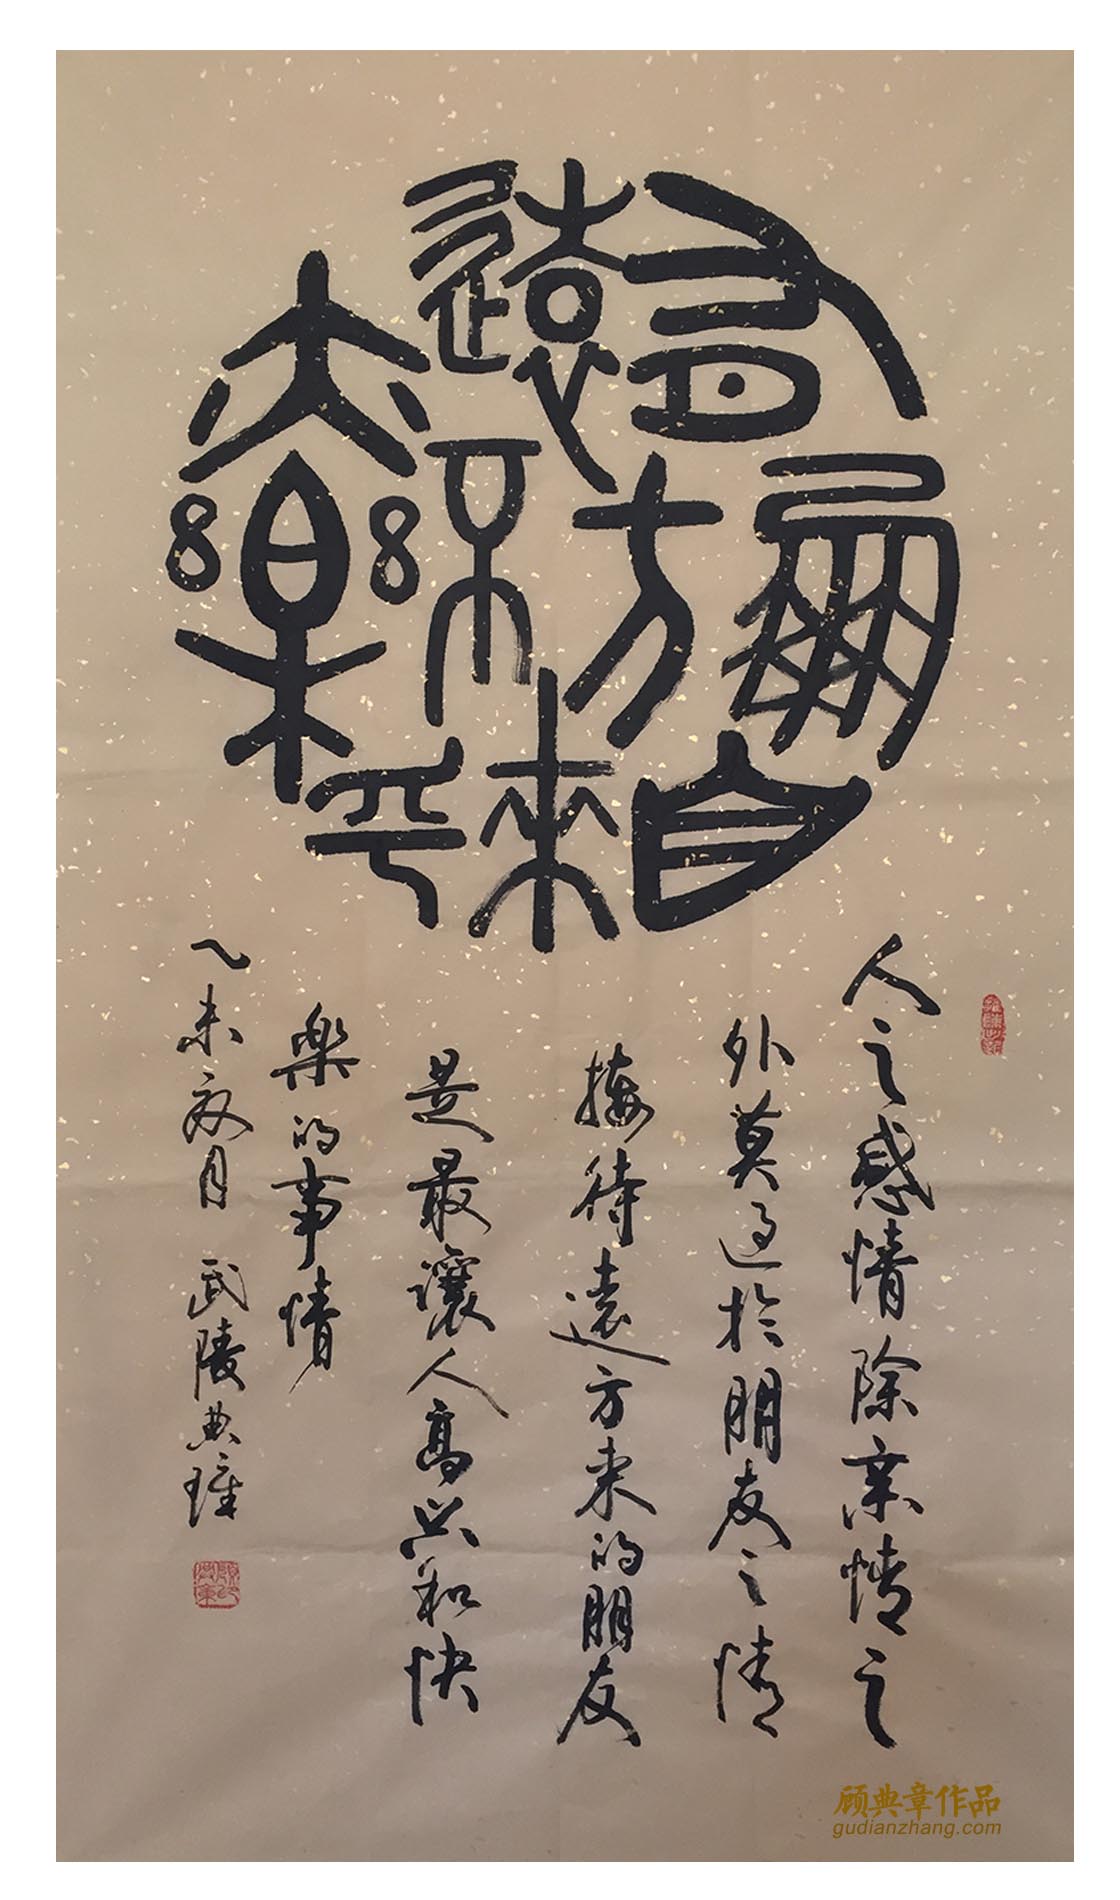 有朋自
遠方來
不亦樂乎
人之感情除亲情之
外莫过於朋友之情
接待遠方来的朋友
是最讓人高兴和快
楽的事情
乙未夏月 武陵典璋
顾典章作品
gudianzhang.com